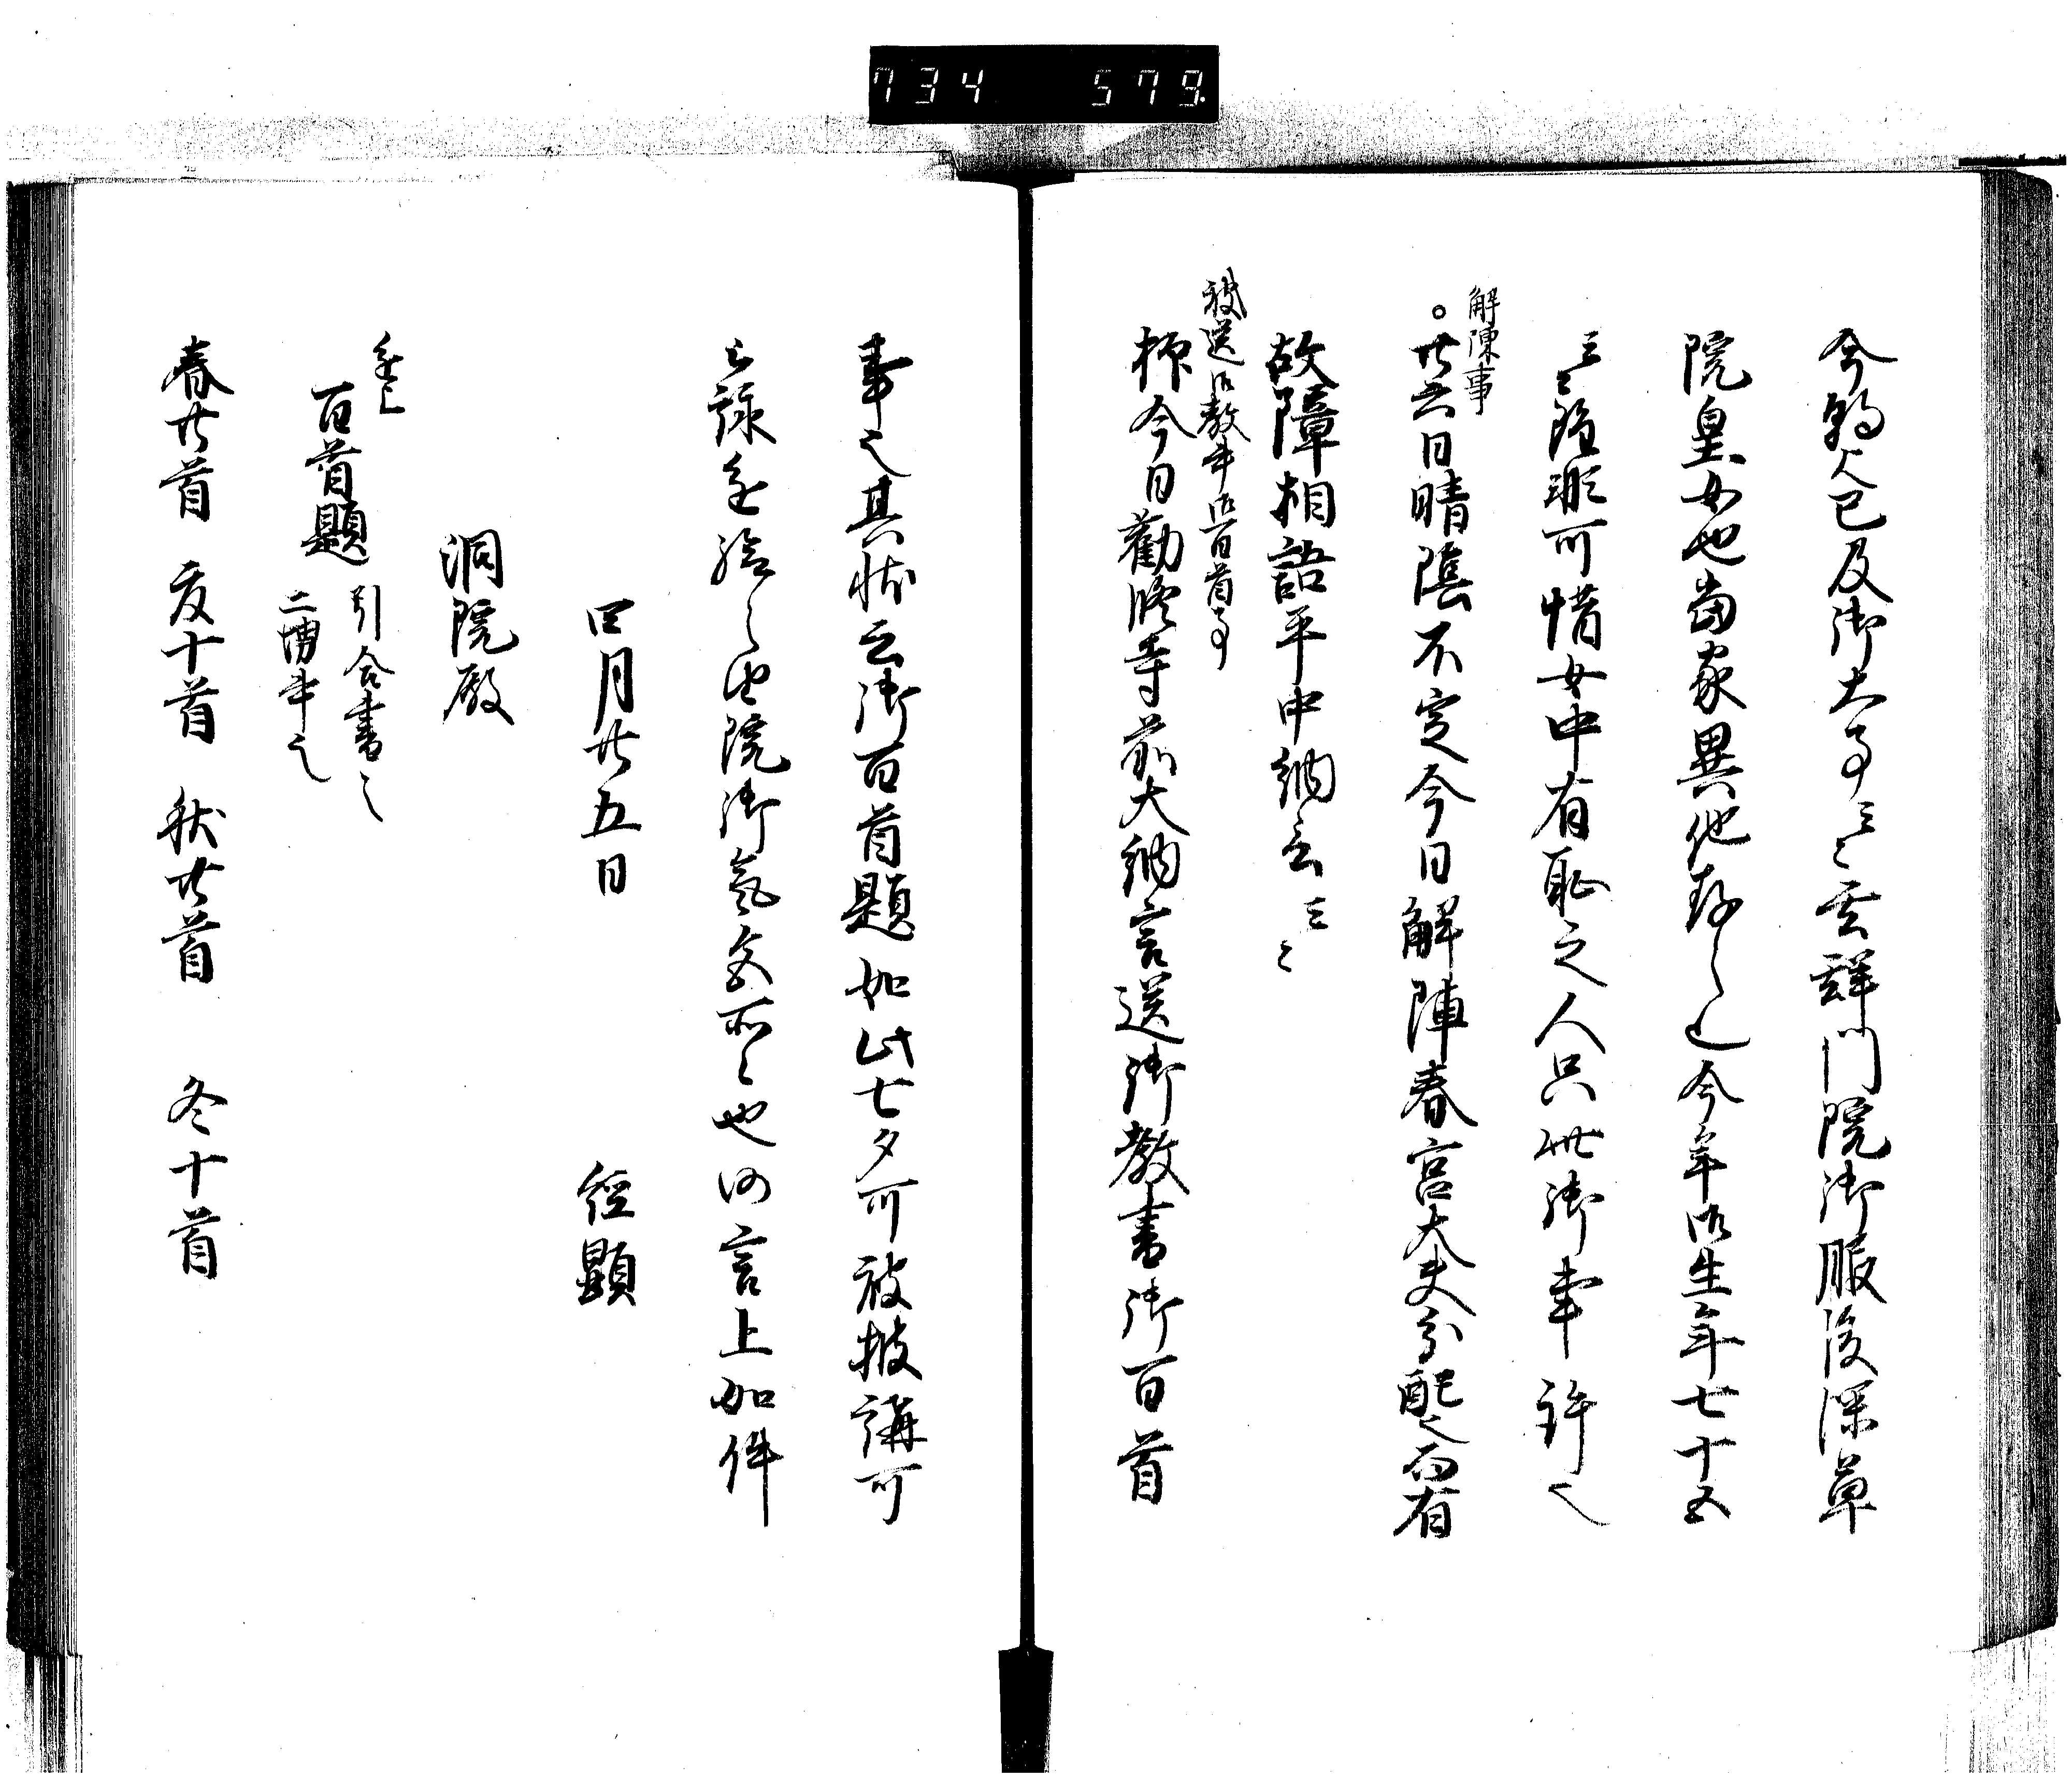 734 579.
今朝已及御大事云々玄輝門院御服後深草
院皇女也当家異他存之也今年御生年七十五
云々雖可惜女中有恥之人只此御事許也
解陳事
。廿六日晴陰不定今日解陣春宮大夫分配也而有
故障相語平中納言云々
被送御教書御百首事
抑今日勧修寺前大納言送御教書御百首
事也其状云御百首題如此七夕可被披講可
令詠進給之由院御気色所候也仍言上如件
四月廿五日 経顕
洞院殿
追上
百首題 引合書之
二摺書之
春廿首 夏十首 秋廿首 冬十首